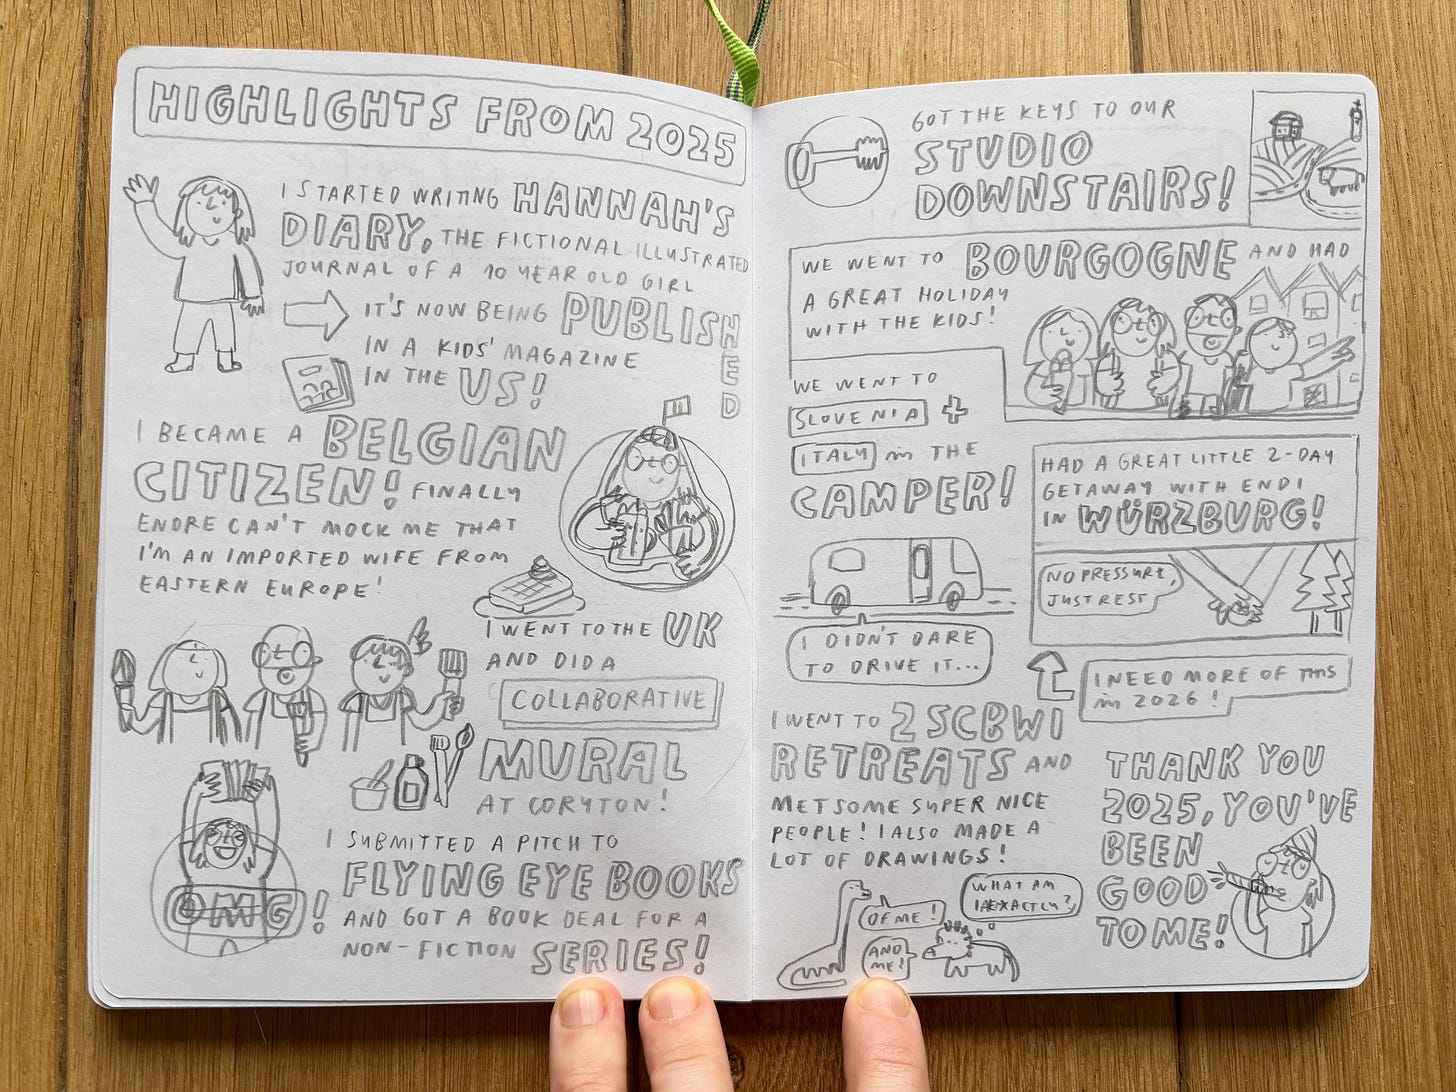 HIGHLIGHTS FROM 2025
I STARTED WRITING HANNAH'S
DIARY, THE FICTIONAL ILLUSTRATED
JOURNAL OF A 10 YEAR OLD GIRL
IT'S NOW BEING PUBLISHED
IN A KIDS' MAGAZINE
IN THE US!
I BECAME A BELGIAN
CITIZEN! FINALLY
ENDRE CAN'T MOCK ME THAT
I'M AN IMPORTED WIFE FROM
EASTERN EUROPE!
I WENT TO THE UK
AND DID A
COLLABORATIVE
MURAL
AT CORYTON!
I SUBMITTED A PITCH TO
FLYING EYE BOOKS
AND GOT A BOOK DEAL FOR A
NON-FICTION SERIES!
OMG!
GOT THE KEYS TO OUR
STUDIO
DOWNSTAIRS!
WE WENT TO BOURGOGNE AND HAD
A GREAT HOLIDAY
WITH THE KIDS!
WE WENT TO
SLOVENIA +
ITALY in THE
CAMPER!
I DIDN'T DARE
TO DRIVE IT...
HAD A GREAT LITTLE 2-DAY
GETAWAY WITH ENDI
IN WÜRZBURG!
NO PRESSURE,
JUST REST
I NEED MORE OF THIS
in 2026!
I WENT TO 2 SCBWI
RETREATS AND
MET SOME SUPER NICE
PEOPLE! I ALSO MADE A
LOT OF DRAWINGS!
OF ME!
AND
ME!
WHAT AM
I EXACTLY?
THANK YOU
2025, YOU'VE
BEEN
GOOD
TO ME!